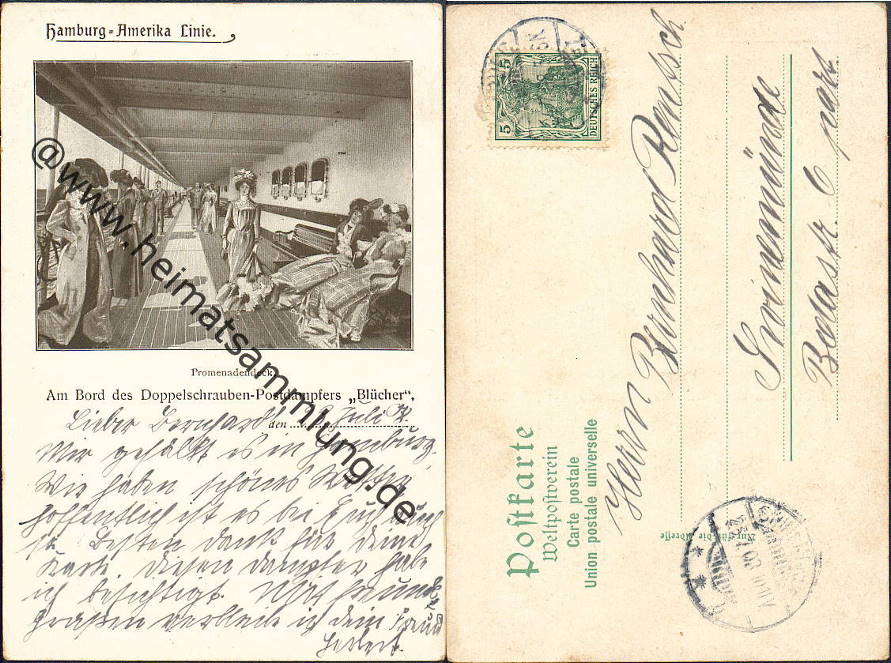 Hamburg-Amerika Linie.
@www.heimatsammlung.de
Promenadendeck.
Am Bord des Doppelschrauben-Postdampfers „Blücher“,
den
Lieber Bernhard! Juli
Mir gefällt es in Hamburg.
Wir haben schönes
hoffentlich ist es bei Euch auch
so. Besten Dank für deine
Karte. Diesen Dampfer habe
ich besichtigt. Mit freund
Grüßen verbleib ich dein Freund
Herbert.
5 5
DEUTSCHES REICH
Postkarte
Weltpostverein
Carte postale
Union postale universelle
Nur für die Adresse
Herrn Bernhard Rentsch
Swinemünde
part